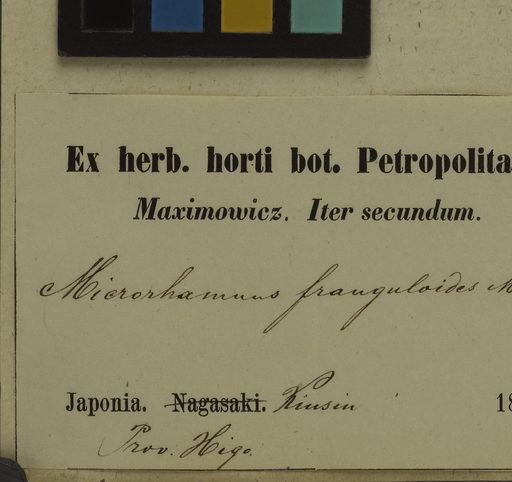 Ex herb. horti bot. Petropolita
Maximowicz. Iter secundum.
Microrhamnus franguloides M
Japonia. Nagasaki. Kiusiu 18
Prov. Higo.